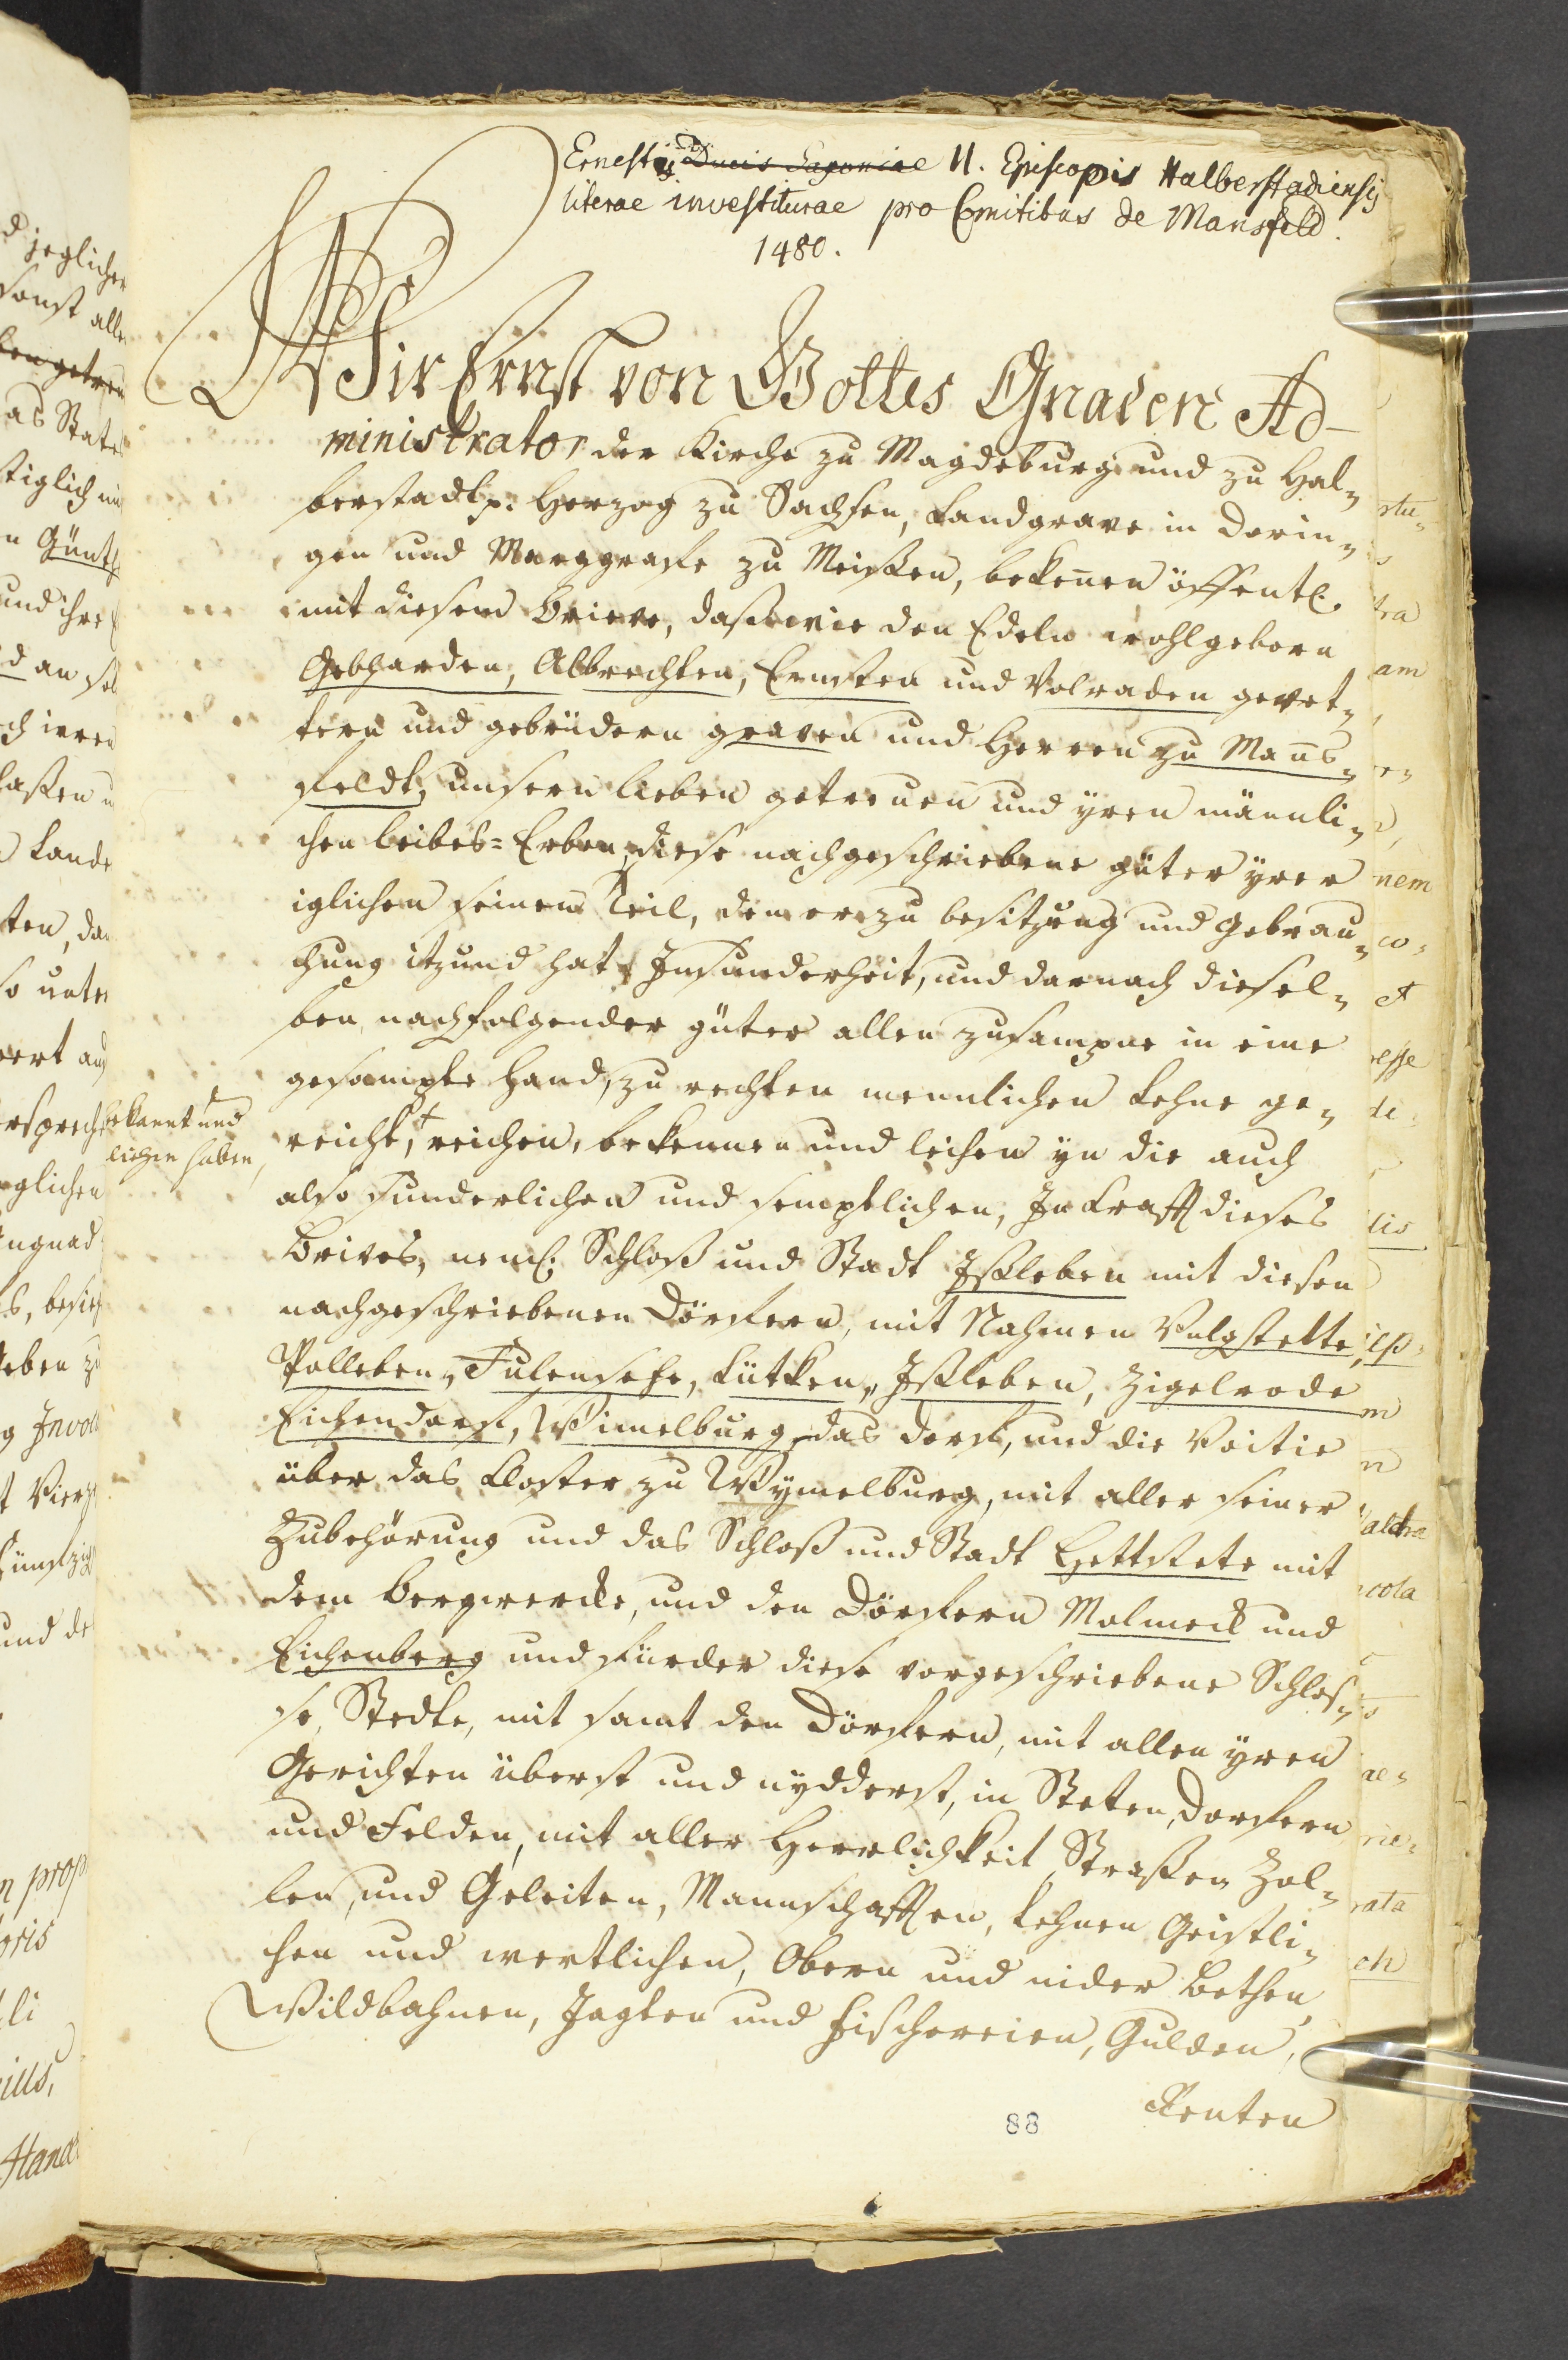 Ernesti Ducis Saxoniae II. Episcopis Halberstadiensis
literae investiturae pro Comitibus de Mansfeld.
1480.
WIr Ernst von Gottes Gnaden Ad-
ministrator der Kirche zu Magdeburg und zu Hal-
berstadt p. Herzog zu Sachsen, Landgrave in Dorin-
gen und Marggrafe zu Meissen, bekennen öffentl.
mit diesem Brieve, daß wir den Edeln wohlgeborn
Gebharden, Albrechten, Ernsten und Volraden gevet-
tern und gebrüdern graven und Herren zu Mans-
feldt, unsern lieben getreuen und yren männli-
chen leibes-Erben, diese nachgeschriebene güter yrer
iglichen seinem Teil, den er zu besitzung und gebrau-
chung itzund hat Insunderheit, und darnach diesel-
ben nachfolgender güter allen zusampne in eine
gesampte Hand, zu rechten mennlichen Lehne ge-
reicht, + reichen, bekennen und leihen yn die auch
bekannt und
liehen haben,
also sunderlichen und semptlichen, In Krafft dieses
Brives, neml. Schloß und Stadt Isleben mit diesen
nachgeschriebenen Dörffern, mit Nahmen Volgstette,
Polleben, Fulensehe, Lütken, Isleben, Zigelrode
Eichendorf, Wimelburg das dorf, und die Voitie
über das Closter zu Wymelburg, mit aller seiner
Zubehörung und das Schloß und Stadt Hettstete mit
dem bergwercke, und den Dörffern Molmeck und
Eichenberg und fürder diese vorgeschriebene Schlos-
se, Stedte, mit samt den Dörffern, mit allen yren
Gerichten überst und nydderst, in Steten, dorffern
und Felden, mit aller Herrlichkeit, Straßen Zol-
len, und Geleiten, Mannschafften, Lehnen Geistli-
chen und wertlichen, Obern und nider Bethen,
Wildbahnen, Jagten und fischereien, Gulden,
Renten
88